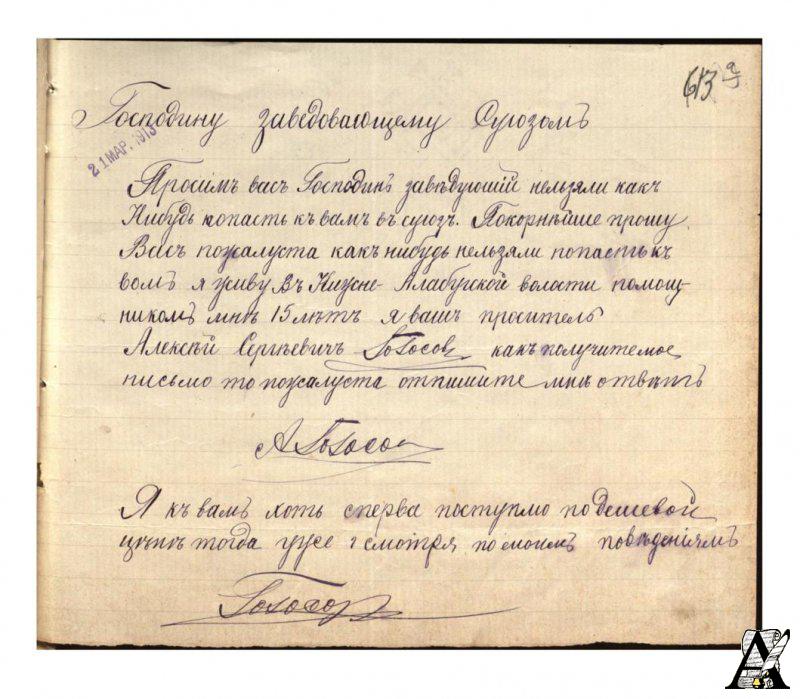 613 а
Господину заведовающему Суюзомъ
21 МАР. 1913
Просимъ васъ Господинъ завѣдующій нельзяли какъ
Нибудь попасть къ вамъ въ суюз. Покорнѣйше прошу
Васъ пожалуста какъ нибудь нельзяли попасть къ
вомъ я живу въ Нижне-Алабугской волости помощ-
никомъ мнѣ 15 лѣтъ я вашъ проситель
Алексѣй Сергѣевичъ какъ получите мое
письмо то пожалуста отпишите мнѣ отвѣтъ
Я къ вамъ хоть сперва поступлю подешевой
цѣнѣ тогда уже смотря по моимъ повѣденіямъ